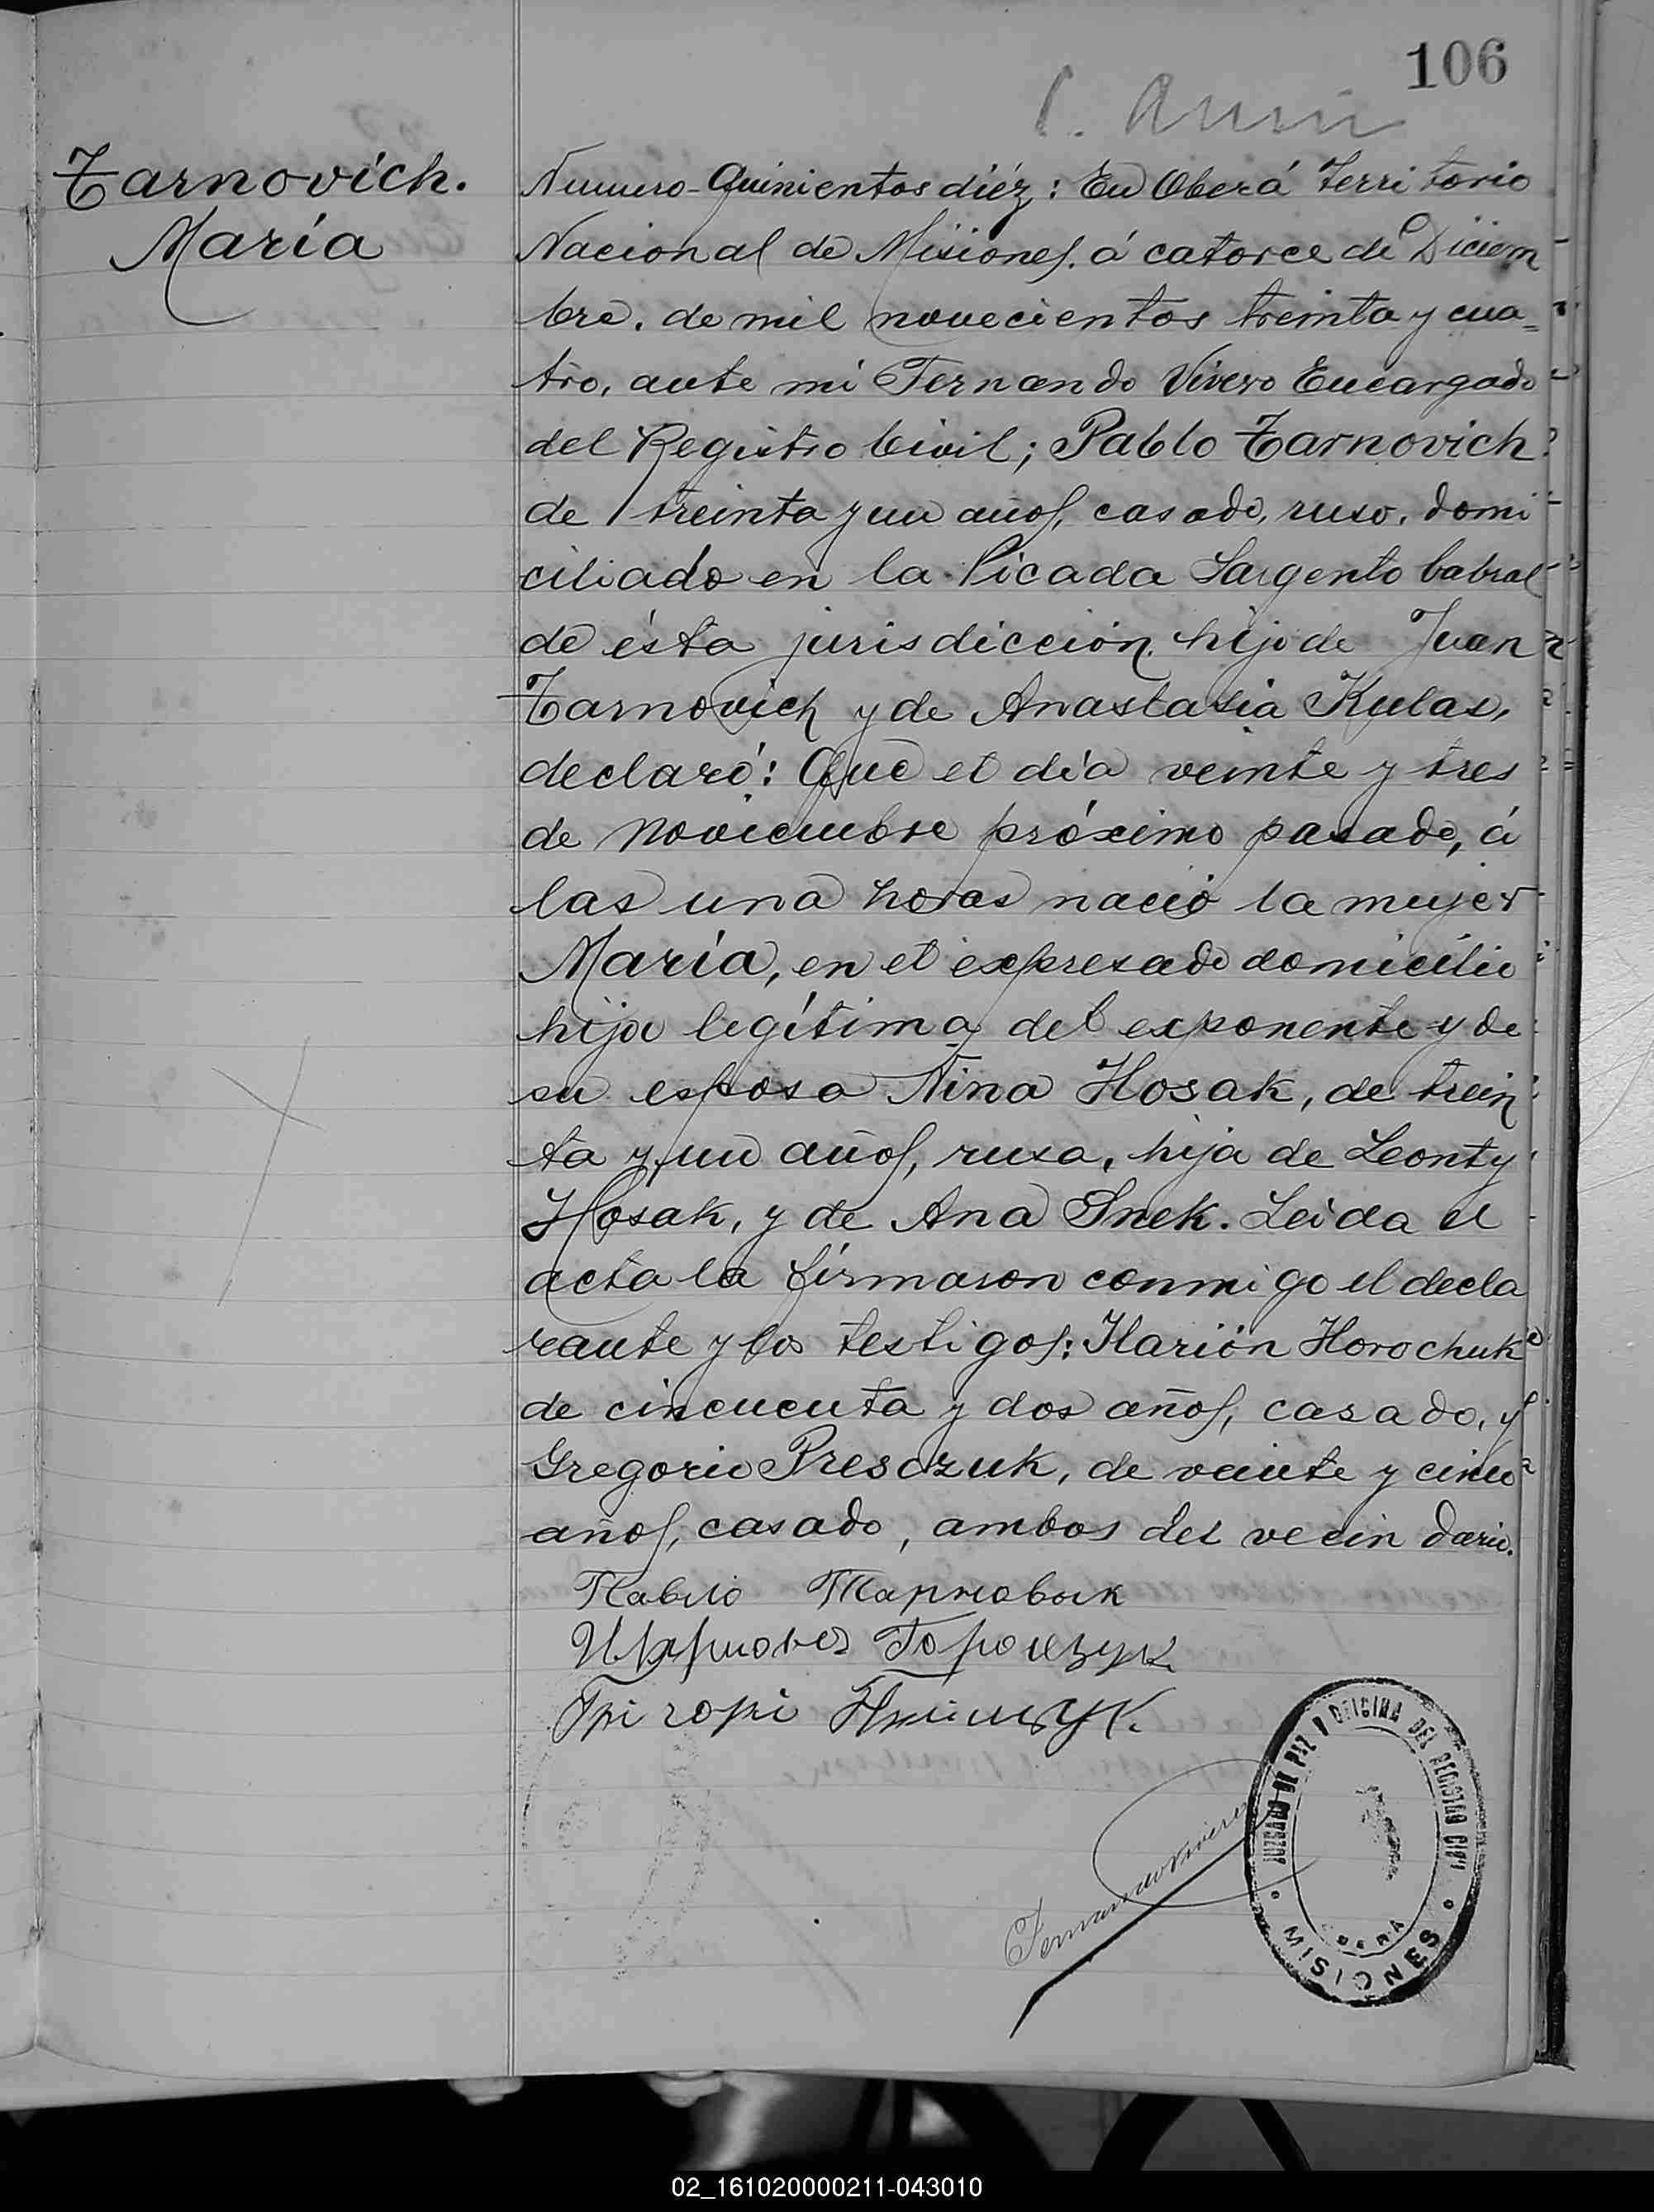 106
Tarnovich.
María
Numero Quinientos diéz: En Oberá Territorio
Nacional de Misiones. á catorce de Diciem
bre. de mil novecientos treinta y cua=
tro, ante mi Fernando Vivero Encargado
del Registro Civil; Pablo Tarnovich
de treinta y un años, casado, ruso. domi
ciliado en la Picada Sargento Cabral
de ésta jurisdicción. hijo de Juan
Tarnovich y de Anastasia Kulas,
declaró: Que el día veinte y tres
de Noviembre próximo pasado, á
las una horas nació la mujer
María, en el expresado domicilio
hija legítima del exponente y de
su esposa Nina Hosak, de trein
ta y un años, rusa, hija de Leonty
Hosak, y de Ana Snek. Leida el
acta la firmaron conmigo el decla
rante y los testigos: Ilarión Horochuk
de cincuenta y dos años, casado, y
Gregorio Presczuk, de veinte y cinco
años, casado, ambos del vecindario.
Павло Тарновык
Горощук
Григорі
JUZGADO DE PAZ Y OFICINA DEL REGISTRO CIVIL
OBERA
MISIONES
02_161020000211-043010